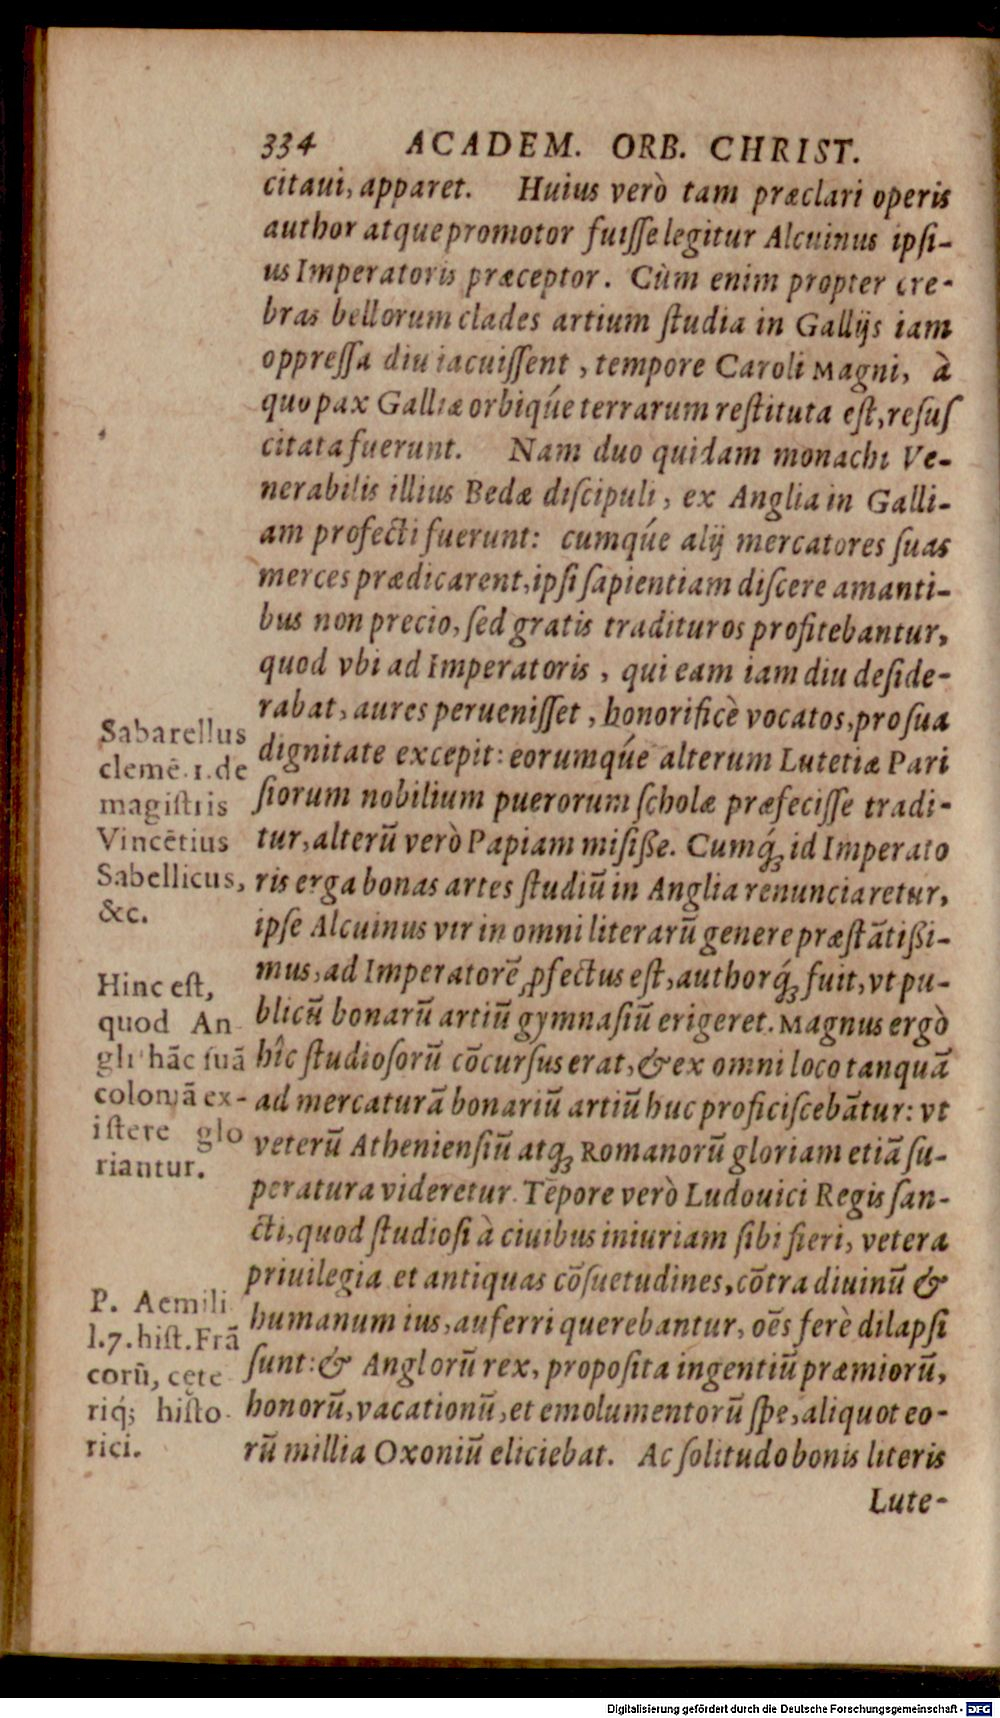 334 ACADEM. ORB. CHRIST.
citaui, apparet. Huius verò tam præclari operis
author atque promotor fuiſſe legitur Alcuinus ipſi-
us Imperatoris præceptor. Cùm enim propter cre-
bras bellorum clades artium ſtudia in Gallijs iam
oppreſſa diu iacuiſſent, tempore Caroli Magni, à
quo pax Galliæ orbiqúe terrarum reſtituta eſt, reſuſ
citata fuerunt. Nam duo quidam monachi Ve-
nerabilis illius Bedæ diſcipuli, ex Anglia in Galli-
am profecti fuerunt: cumqúe alij mercatores ſuas
merces prædicarent, ipſi ſapientiam diſcere amanti-
bus non precio, ſed gratis tradituros profitebantur,
quod vbi ad Imperatoris, qui eam iam diu deſide-
rabat, aures perueniſſet, honorificè vocatos, pro ſua
dignitate excepit: eorumqúe alterum Lutetiæ Pari
ſiorum nobilium puerorum ſcholæ præfeciſſe tradi-
tur, alterū verò Papiam miſiße. Cumq́ꝫ id Imperato
ris erga bonas artes ſtudiū in Anglia renunciaretur,
ipſe Alcuinus vir in omni literarū genere præſtātißi-
mus, ad Imperatorē ꝓfectus eſt, authorq́ꝫ fuit, vt pu-
blicū bonarū artiū gymnaſiū erigeret. Magnus ergò
hîc ſtudioſorū cōcurſus erat, & ex omni loco tanquā
ad mercaturā bonariū artiū huc proficiſcebātur: vt
veterū Athenienſiū atqꝫ Romanorū gloriam etiā ſu-
peratura videretur. Tēpore verò Ludouici Regis ſan-
cti, quod ſtudioſi à ciuibus iniuriam ſibi fieri, vetera
priuilegia et antiquas cōſuetudines, cōtra diuinū &
humanum ius, auferri querebantur, oēs ferè dilapſi
ſunt: & Anglorū rex, propoſita ingentiū præmiorū,
honorū, vacationū, et emolumentorū ſpe, aliquot eo-
rū millia Oxoniū eliciebat. Ac ſolitudo bonis literis
Lute-
Sabarellus
clemē. 1. de
magiſtris
Vincētius
Sabellicus,
&c.
Hinc eſt,
quod An
gli hāc ſuā
coloniā ex-
iſtere glo
riantur.
P. Aemili
l. 7. hiſt. Frā
corū, cęte
riq́ꝫ hiſto-
rici.
Digitalisierung gefördert durch die Deutsche Forschungsgemeinschaft - DFG